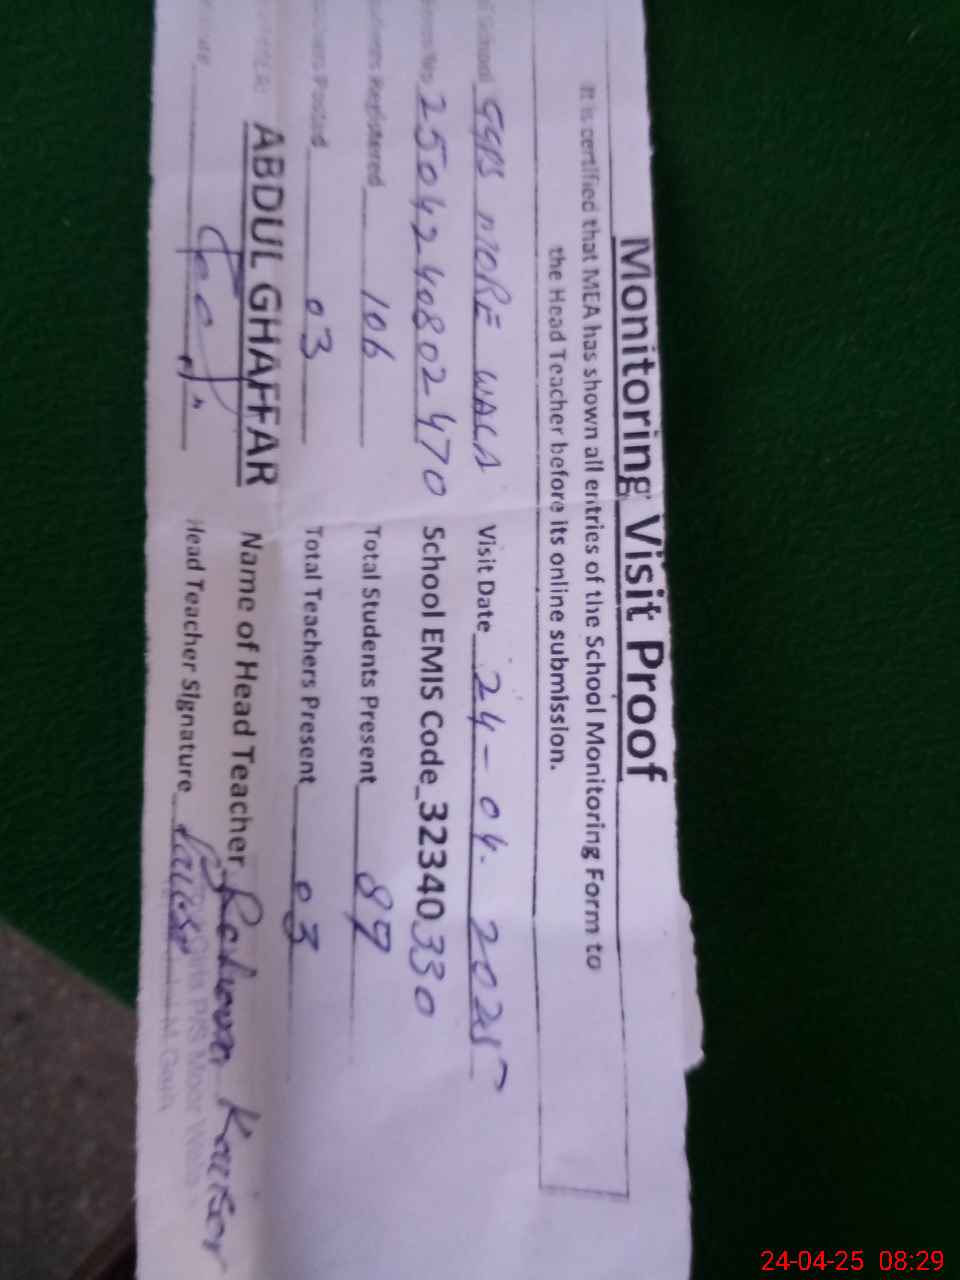 Monitoring Visit Proof
It is certified that MEA has shown all entries of the School Monitoring Form to
the Head Teacher before its online submission.
School GGPS MORE WALA Visit Date 24-04-2025
No. 25042240802470 School EMIS Code 32340330
Registered 106 Total Students Present 89
Posted 03 Total Teachers Present 03
ABDUL GHAFFAR Name of Head Teacher Kausar
Head Teacher Signature
24-04-25 08:29